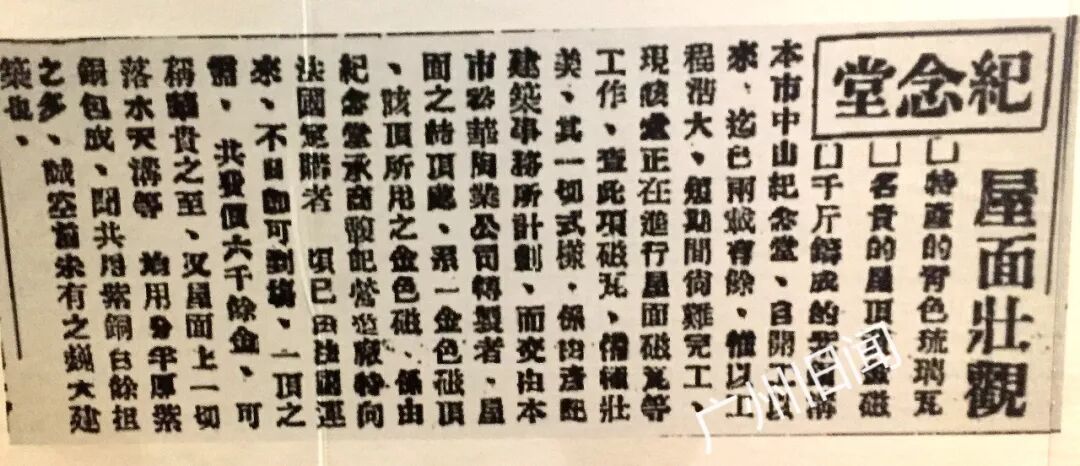 紀念堂
屋面壯觀
□特產的青色琉璃瓦
□名貴的屋頂金磁
□千斤鑄成的紫銅溝
本市中山紀念堂、自開
來、迄已兩載有餘、惟以工
程浩大、短期間尙難完工、
現該堂正在進行屋面磁瓦等
工作、查此項磁瓦、備極壯
美、其一切式樣、係由彥記
建築事務所計劃、而交由本
市裕華陶業公司轉製者、屋
面之特頂處、系一金色磁頂
、該頂所用之金色磁、係由
紀念堂承商馥記營造廠特向
法國定購者 頃已由法國運
來、不日即可到埗、一頂之
需、共費價六千餘金、可
稱華貴之至、又屋面上一切
落水天溝等 均用分半厚紫
銅包成、聞共用紫銅百餘担
之多、誠空前未有之巍大建
築也、
广州旧闻